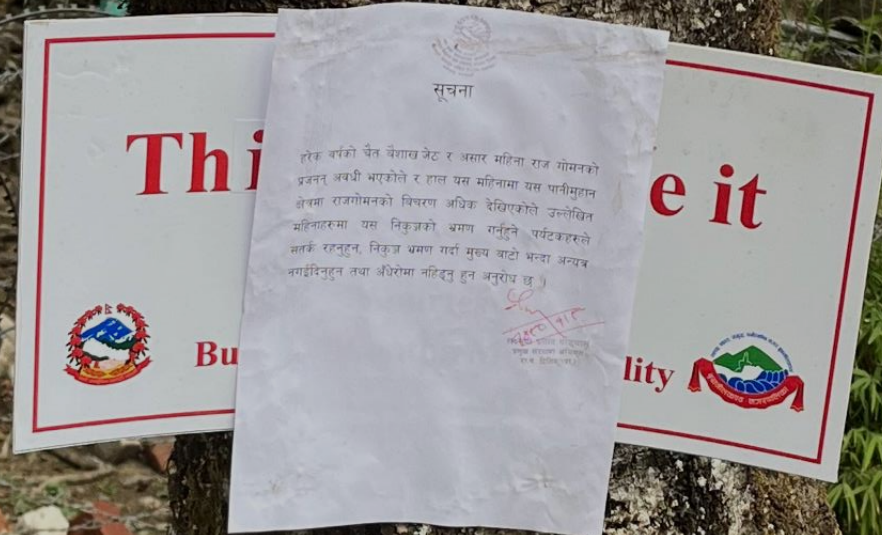 Thi
e it
Bu
lity
सूचना
हरेक बर्षको चैत बैशाख जेठ र असार महिना राज गोमनको
प्रजनन् अवधी भएकोले र हाल यस महिनामा यस पानीमुहान
क्षेत्रमा राजगोमनको विचरण अधिक देखिएकोले उल्लेखित
महिनाहरुमा यस निकुञ्जको भ्रमण गर्नुहुने पर्यटकहरुले
सतर्क रहनुहुन, निकुञ्ज भ्रमण गर्दा मुख्य बाटो भन्दा अन्यत्र
नगईदिनुहुन तथा अँधेरोमा नहिड्नु हुन अनुरोध छ ।